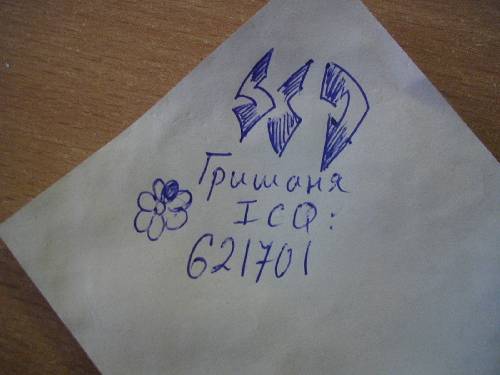 Гришаня
ICQ:
621701